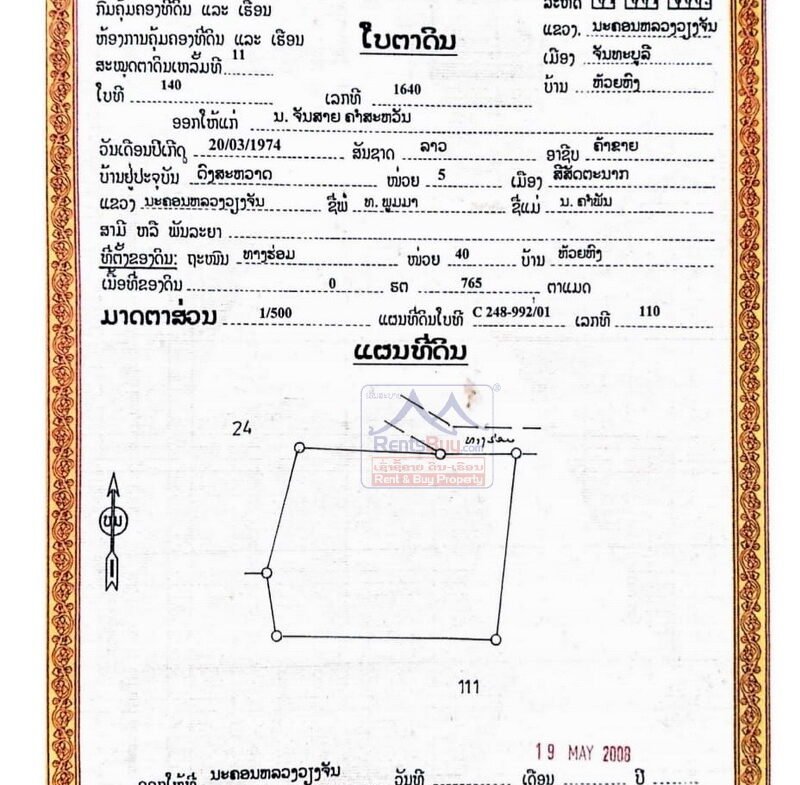 ກົມຄຸ້ມຄອງທີ່ດິນ ແລະ ເຮືອນ
ຫ້ອງການຄຸ້ມຄອງທີ່ດິນ ແລະ ເຮືອນ
ສະໝຸດຕາດິນເຫລັ້ມທີ 11
ໃບຕາດິນ
ແຂວງ. ນະຄອນຫລວງວຽງຈັນ
ເມືອງ ຈັນທະບູລີ
ບ້ານ ຫ້ວຍຫົງ
ໃບທີ 140 ເລກທີ 1640
ອອກໃຫ້ແກ່ ນ. ຈັນສາຍ ຄຳສະຫວັນ
ວັນເດືອນປີເກີດ 20/03/1974 ສັນຊາດ ລາວ ອາຊີບ ຄ້າຂາຍ
ບ້ານຢູ່ປະຈຸບັນ ດົງສະຫວາດ ໜ່ວຍ 5 ເມືອງ ສີສັດຕະນາກ
ແຂວງ ນະຄອນຫລວງວຽງຈັນ ຊື່ພໍ່ ທ. ພູມມາ ຊື່ແມ່ ນ. ຄຳພັນ
ສາມີ ຫລື ພັນລະຍາ
ທີ່ຕັ້ງຂອງດິນ: ຖະໜົນ ທາງຮ່ອມ ໜ່ວຍ 40 ບ້ານ ຫ້ວຍຫົງ
ເນື້ອທີ່ຂອງດິນ 0 ຮຕ 765 ຕາແມດ
ມາດຕາສ່ວນ 1/500 ແຜນທີ່ດິນໃບທີ C 248-992/01 ເລກທີ 110
ແຜນທີ່ດິນ
24
ທາງຮ່ອມ
RentsBuy.com
ເຊົ່າຊື້ຂາຍ ດິນ-ເຮືອນ
Rent & Buy Property
111
19 MAY 2008
ອອກໃຫ້ທີ່ ນະຄອນຫລວງວຽງຈັນ ວັນທີ ເດືອນ ປີ